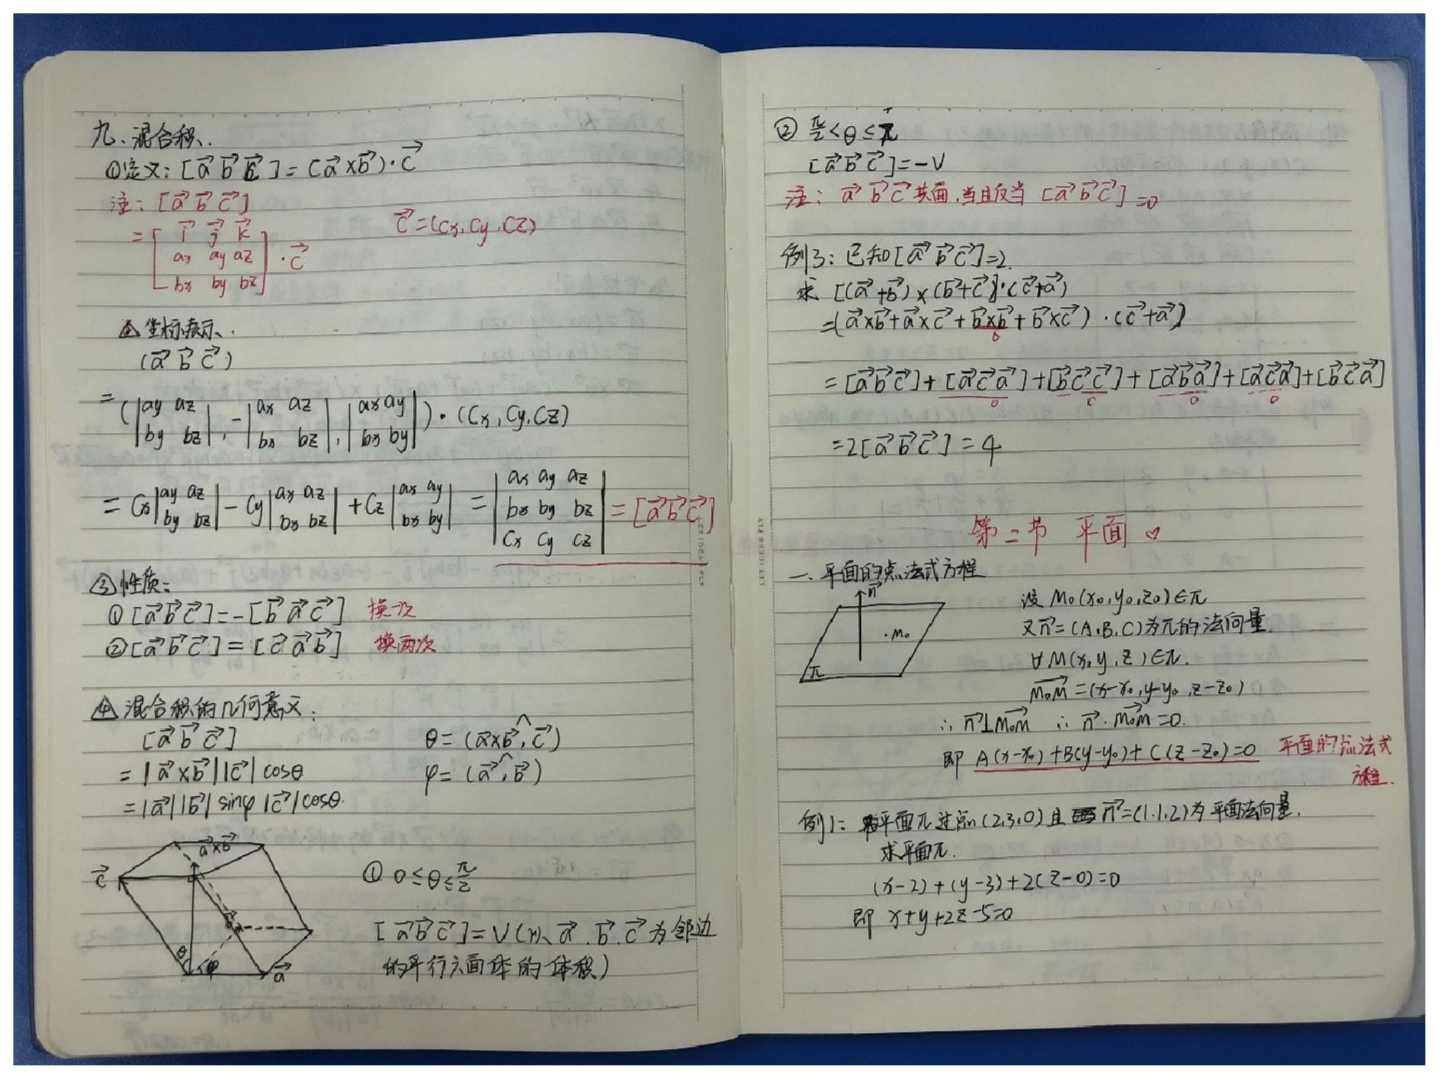 九、混合积.
①定义：[a⃗ b⃗ c⃗] = (a⃗×b⃗)·c⃗
注：[a⃗ b⃗ c⃗]
c⃗=(cx, cy, cz)
= [ i⃗ j⃗ k⃗
ax ay az
bx by bz ] · c⃗
②坐标表示.
(a⃗ b⃗ c⃗)
= (|ay az; by bz|, -|ax az; bx bz|, |ax ay; bx by|)·(cx, cy, cz)
= cx|ay az; by bz| - cy|ax az; bx bz| + cz|ax ay; bx by| = |ax ay az; bx by bz; cx cy cz| = [a⃗ b⃗ c⃗]
③性质：
①[a⃗ b⃗ c⃗] = -[b⃗ a⃗ c⃗] 换一次
②[a⃗ b⃗ c⃗] = [c⃗ a⃗ b⃗] 换两次
④混合积的几何意义：
[a⃗ b⃗ c⃗] θ = (a⃗×b⃗^,c⃗)
= |a⃗×b⃗||c⃗|cosθ φ = (a⃗^,b⃗)
= |a⃗||b⃗|sinφ|c⃗|cosθ.
a⃗×b⃗
c⃗
b⃗
θ φ
a⃗
① 0≤θ≤π/2
[a⃗ b⃗ c⃗] = V(以a⃗.b⃗.c⃗为邻边
的平行六面体的体积)
② π/2<θ≤π
[a⃗ b⃗ c⃗] = -V
注：a⃗ b⃗ c⃗共面,当且仅当 [a⃗ b⃗ c⃗] =0
例3：已知[a⃗ b⃗ c⃗]=2.
求 [(a⃗+b⃗)×(b⃗+c⃗)]·(c⃗+a⃗)
=(a⃗×b⃗+a⃗×c⃗+b⃗×b⃗+b⃗×c⃗)·(c⃗+a⃗)]
0
= [a⃗b⃗c⃗]+[a⃗c⃗a⃗]+[b⃗c⃗c⃗]+[a⃗b⃗a⃗]+[a⃗c⃗a⃗]+[b⃗c⃗a⃗]
0 0 0 0
=2[a⃗ b⃗ c⃗] = 4
LET IDEAS FLY
第二节 平面
一.平面的点法式方程
n⃗
·M₀
π
设 M₀(x₀,y₀,z₀)∈π
又n⃗=(A,B,C)为π的法向量.
∀M(x,y,z)∈π.
M₀M⃗=(x-x₀,y-y₀,z-z₀)
∴ n⃗⊥M₀M⃗ ∴ n⃗·M₀M⃗=0.
即 A(x-x₀)+B(y-y₀)+C(z-z₀)=0 平面的点法式
方程.
例1：平面π过点(2,3,0)且n⃗=(1,1,2)为平面法向量.
求平面π.
(x-2)+(y-3)+2(z-0)=0
即 x+y+2z-5=0